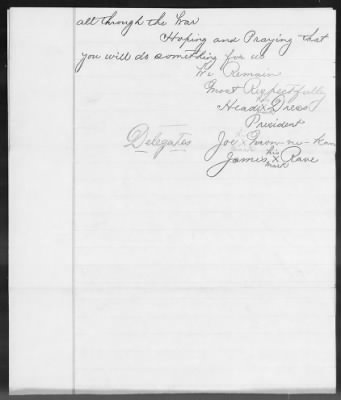 all through the War
Hoping and Praying that
you will do something for us
We Remain
Most Respectfully
Head x Dress
President
Delegates Joe x
James his x mark Rave